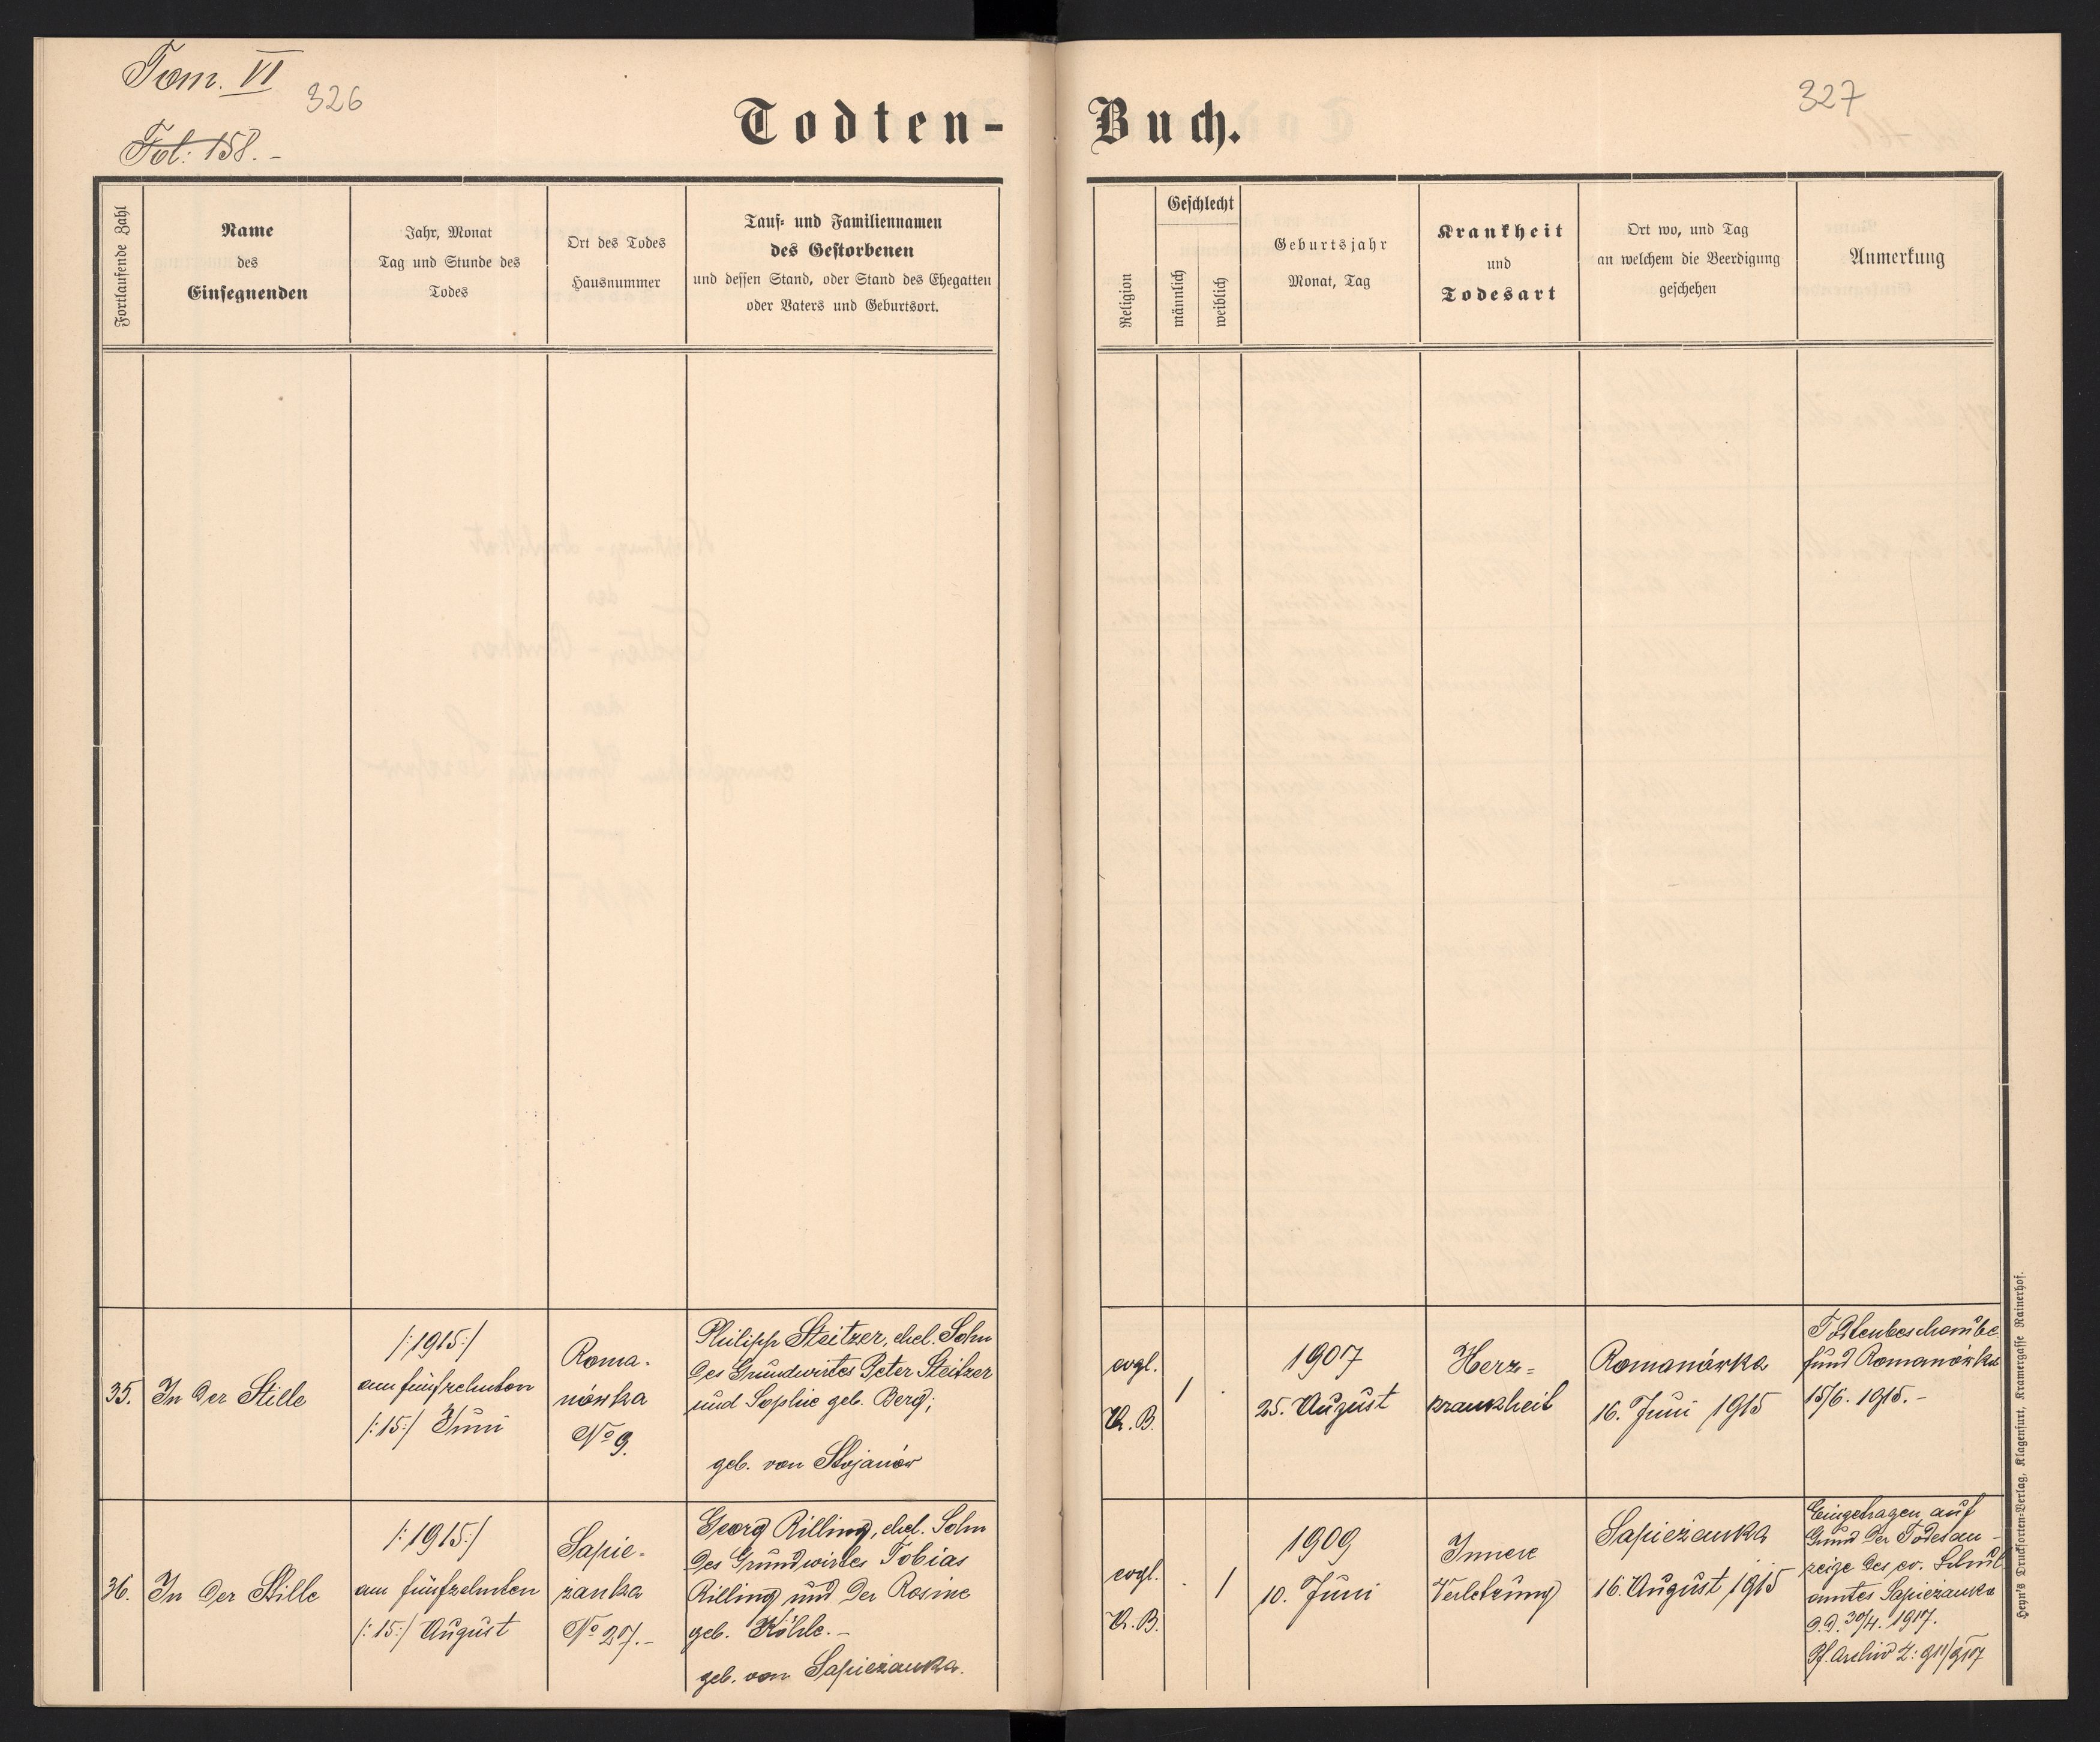 Tom. VI
326
Fol: 158. -
Todten-
Buch.
327
Fortlaufende Zahl
Name
des
Einsegnenden
Jahr, Monat
Tag und Stunde des
Todes
Ort des Todes
Hausnummer
Tauf- und Familiennamen
des Gestorbenen
und dessen Stand, oder Stand des Ehegatten
oder Vaters und Geburtsort.
Religion
Geschlecht
männlich
weiblich
Geburtsjahr
Monat, Tag
Krankheit
und
Todesart
Ort wo, und Tag
an welchem die Beerdigung
geschehen
Anmerkung
35.
In der Stille
/:1915:/
am fünfzehnten
/:15:/ Juni
Roma-
nówka
No 9.
Philipp Steitzer, ehel. Sohn
des Grundwirtes Peter Steitzer
und Sophie geb. Berg;
geb. von Stojanów
evgl.
A. B.
/ .
1907
25. August
Herz=
krankheit
Romanówka
16. Juni 1915
Todtenbeschaube
fund Romanówka
15/6. 1915. -
36.
In der Stille
/:1915:/
am fünfzehnten
/:15:/ August
Sapie-
zanka
No 27. -
Georg Rilling, ehel. Sohn
des Grundwirtes Tobias
Rilling und der Rosine
geb. Köhle. -
geb. von Sapiezanka.
evgl.
A. B.
. /
1909
10. Juni
Innere
Verletzung
Sapiezanka
16. August 1915
Eingetragen auf
Grund der Todesan-
zeige des ev. Schul
amtes Sapiezanka
d. d. 30/4. 1917.
Pf. Archiv Z: 911/917
Heyn's Drucksorten-Verlag, Klagenfurt, Kramergasse Rainerhof.